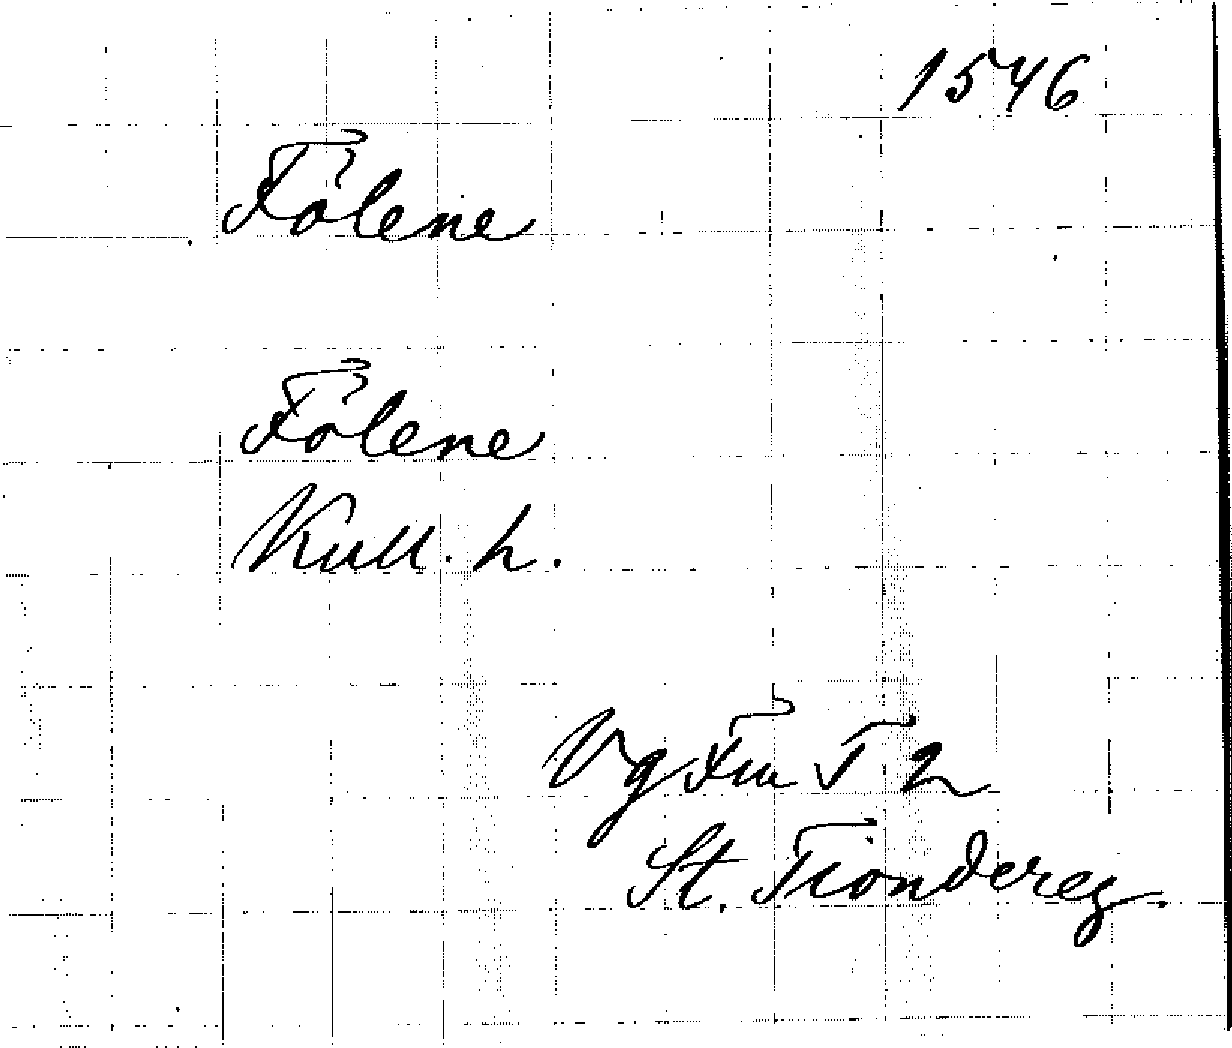 1546
Fölene
Fölene
Kull. h.
Vg Fru T 2
St. Tiondereg.